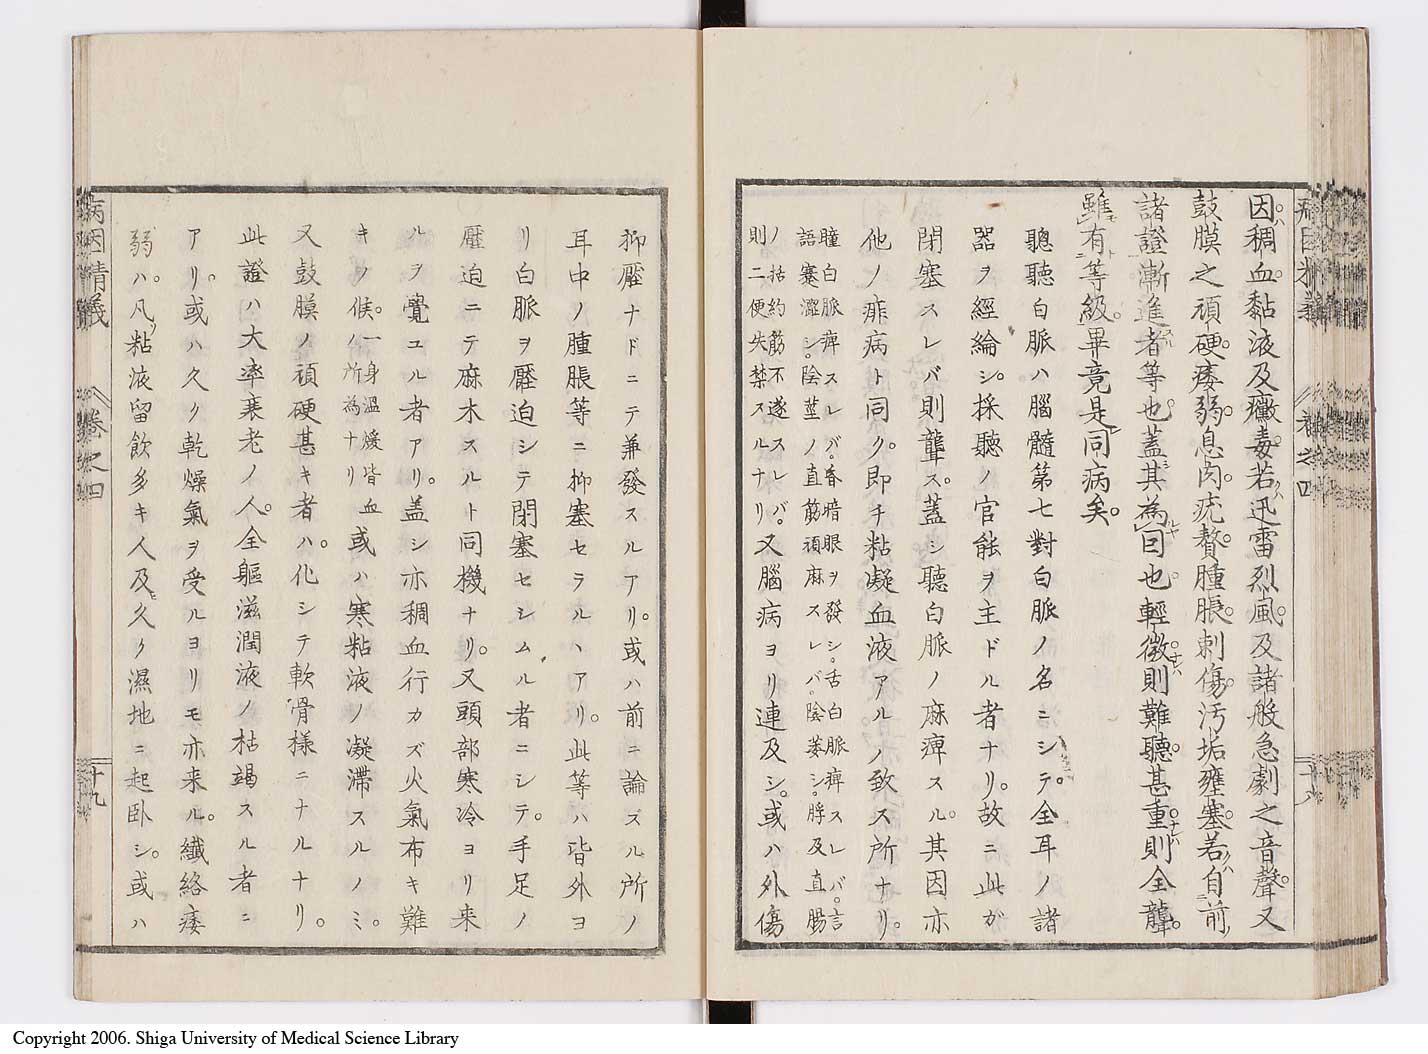 因稠血黏液及黴毒若迅雷烈風及諸般急劇之音聲又
鼓膜之頑硬痿弱息肉疣贅腫脹刺傷汚垢壅塞若自前
諸證漸進者等也蓋其為因也輕微則難聽甚重則全聾
雖有等級畢竟是同病矣
聽白脈ハ腦髓第七對白脈ノ名ニシテ全耳ノ諸
器ヲ經綸シ採聽ノ官能ヲ主ドル者ナリ故ニ此ガ
閉塞スレバ則聾ス蓋シ聽白脈ノ麻痺スル其因亦
他ノ痱病ト同ク即チ粘凝血液アルノ致ス所ナリ
瞳白脈痺スレバ昏暗眼ヲ發シ舌白脈痺スレバ言
語蹇澀シ陰莖ノ直筋頑麻スレバ陰萎シ脬及直腸
ノ括約筋不遂スレバ
則二便失禁スルナリ
又腦病ヨリ連及シ或ハ外傷
抑壓ナドニテ兼發スルアリ或ハ前ニ論ズル所ノ
耳中ノ腫脹等ニ抑塞セラルヽアリ此等ハ皆外ヨ
リ白脈ヲ壓迫シテ閉塞セシムル者ニシテ手足ノ
壓迫ニテ麻木スルト同機ナリ又頭部寒冷ヨリ来
ルヲ覺ユル者アリ盖シ亦稠血行カズ火氣布キ難
キノ候
一身溫煖皆血
ノ所為ナリ
或ハ寒粘液ノ凝滯スルノミ
又鼓膜ノ頑硬甚キ者ハ化シテ軟骨樣ニナルナリ
此證ハ大率衰老ノ人全軀滋潤液ノ枯竭スル者ニ
アリ或ハ久ク乾燥氣ヲ受ルヨリモ亦来ル纖絡痿
弱ハ凡ソ粘液留飲多キ人及ヒ久ク濕地ニ起卧シ或ハ
病因精義
卷之四
十九